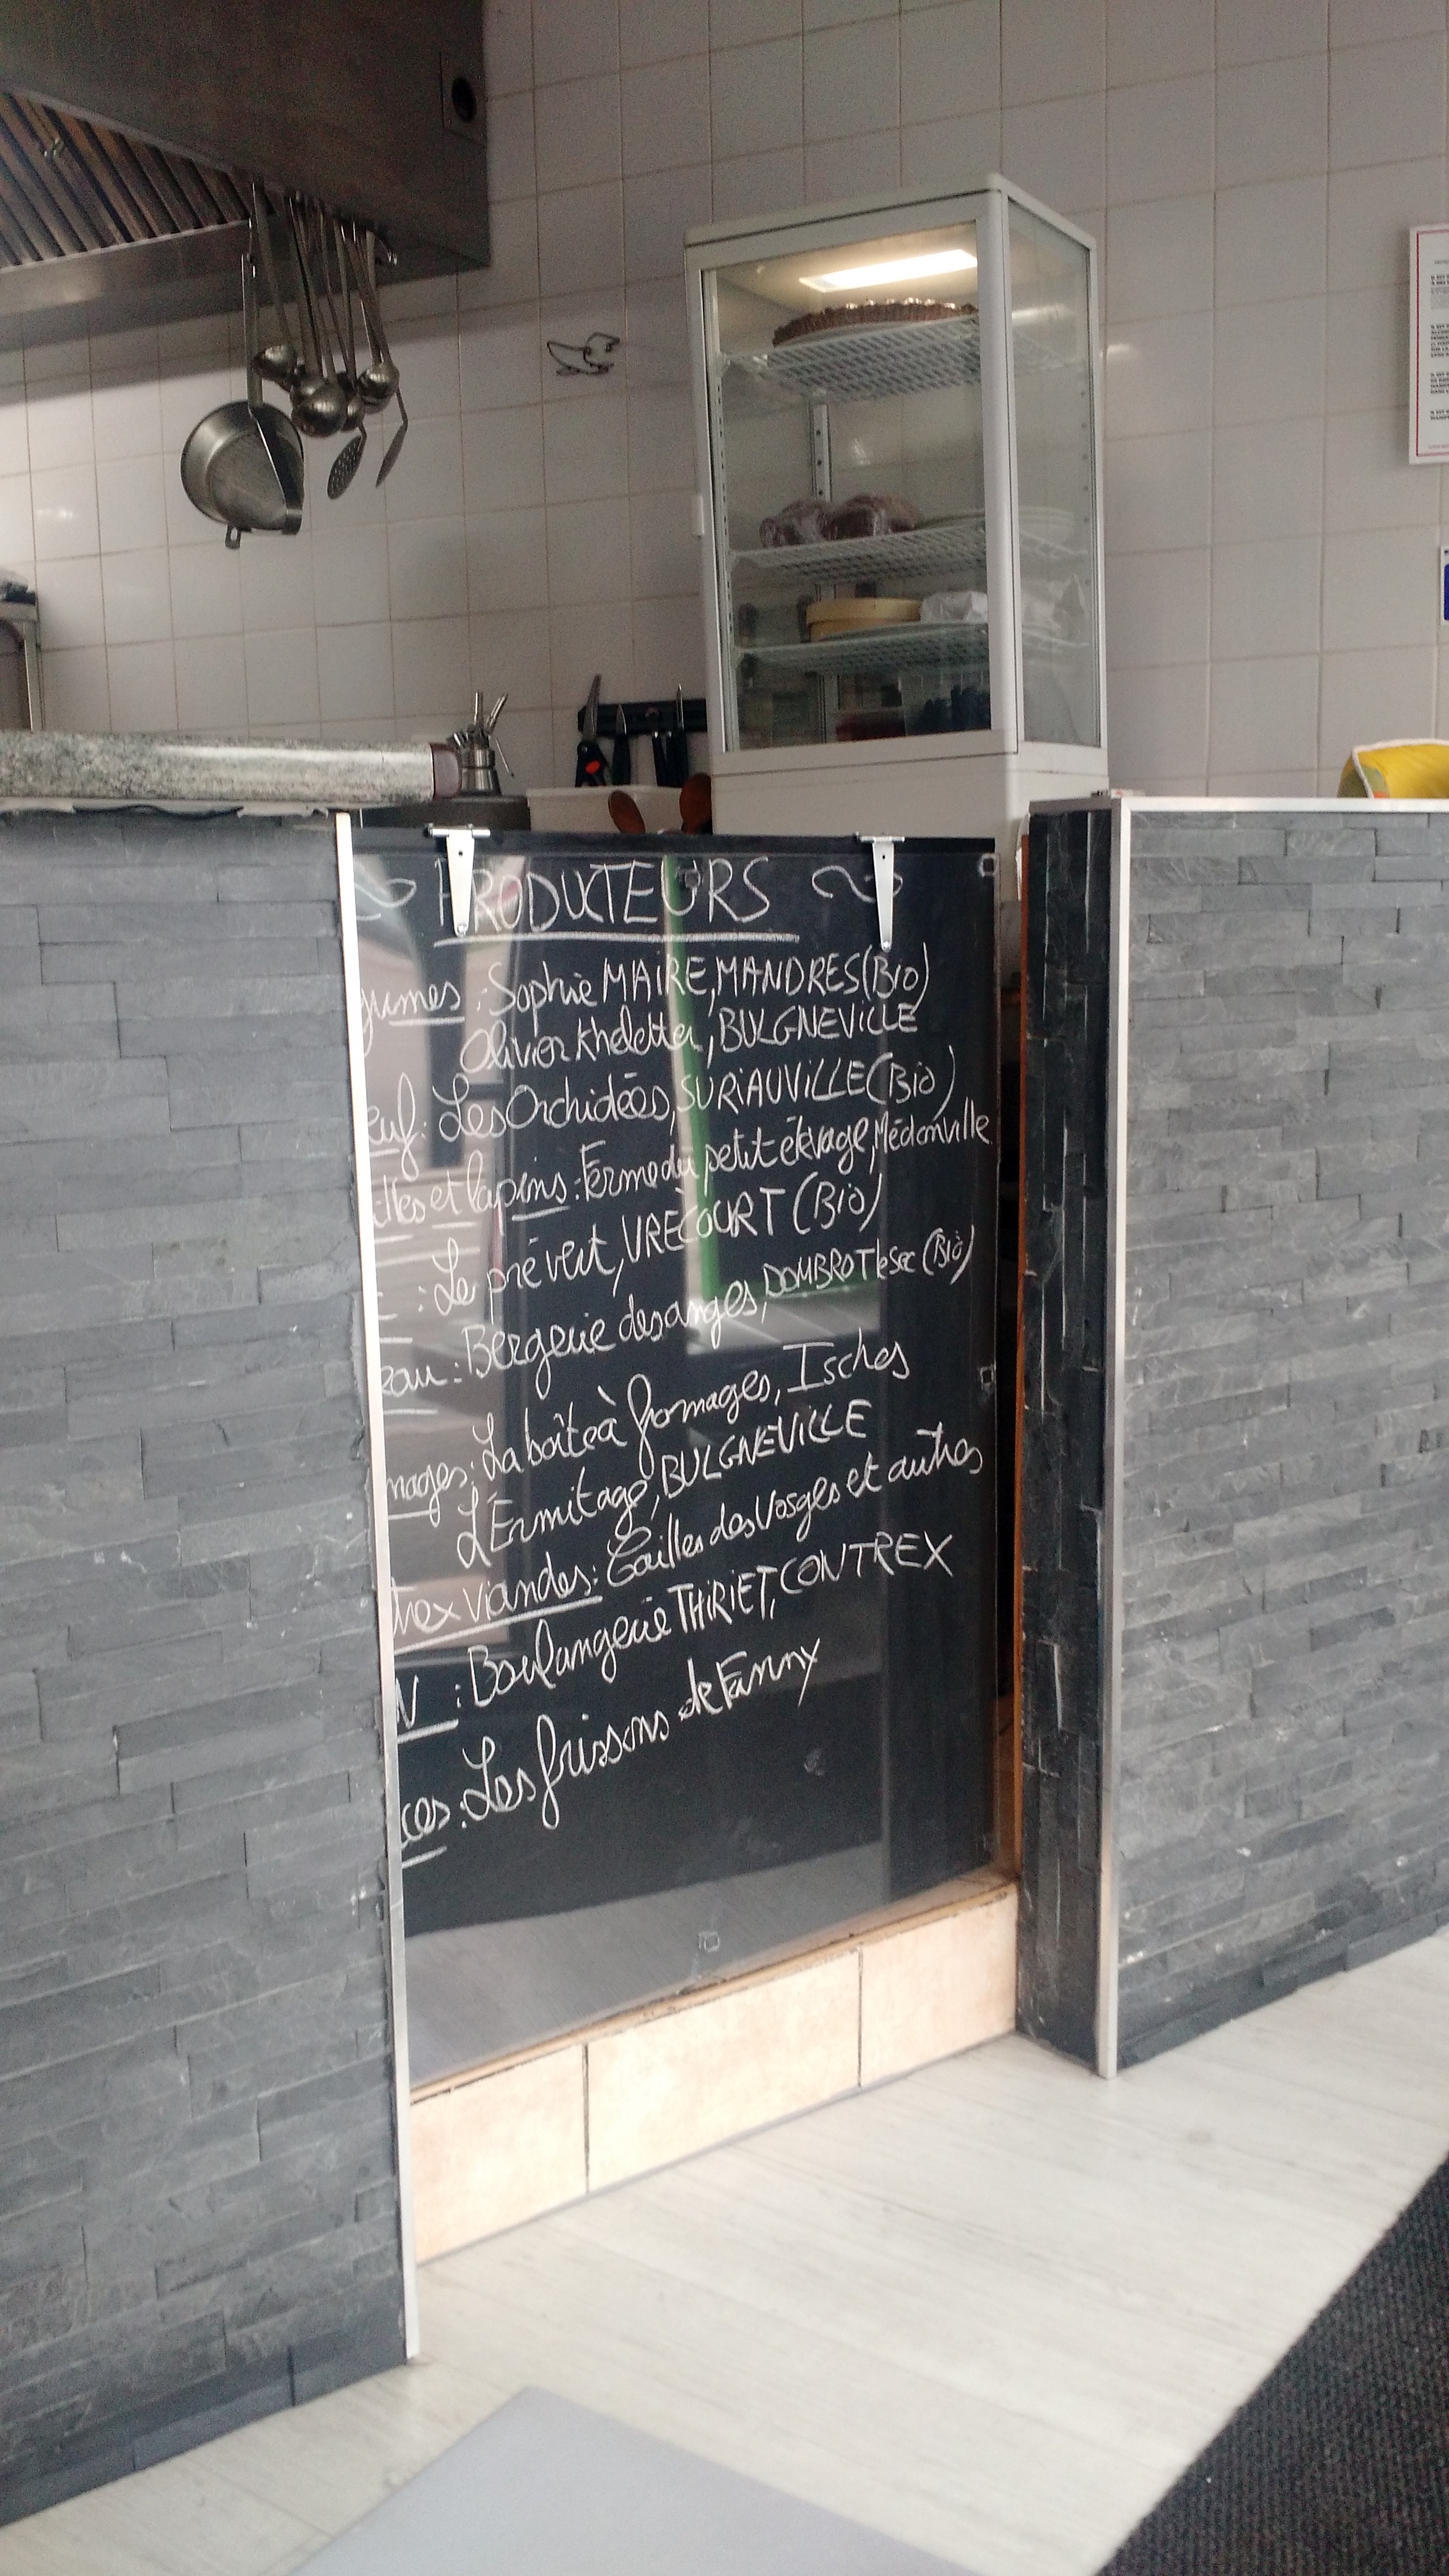 PRODUCTEURS
gumes : Sophie MAIRE, MANDRES (Bio)
Olivier Kheletter, BULGNEVILLE
euf : Les Orchidées, SURIAUVILLE (Bio)
illes et lapins : Ferme du petit élevage, Médonville
: Le pré vert, VRÉCOURT (Bio)
eau : Bergerie des anges, DOMBROT le Sec (Bio)
mages : La boîte à fromages, Isches
L'Ermitage, BULGNEVILLE
tres viandes : Cailles des Vosges et autres
N : Boulangerie THIRIET, CONTREX
ces : Les frissons de Fanny